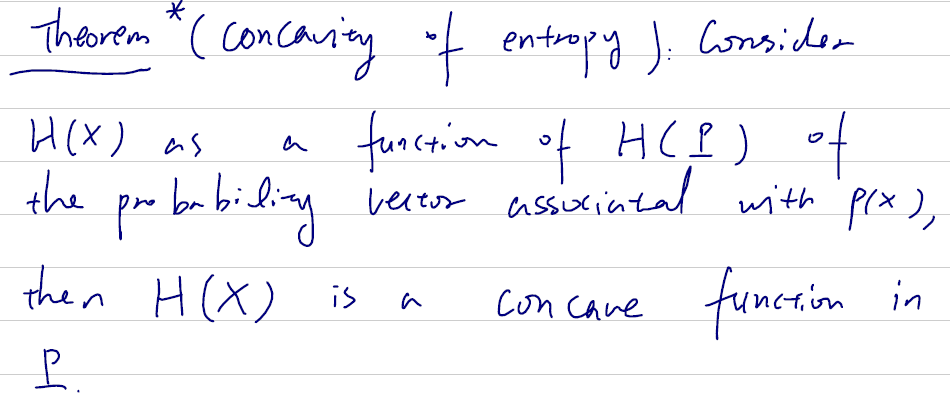 Theorem * (concavity of entropy). Consider
H(X) as a function of H(P) of
the probability vector associated with p(x),
then H(X) is a concave function in
P.